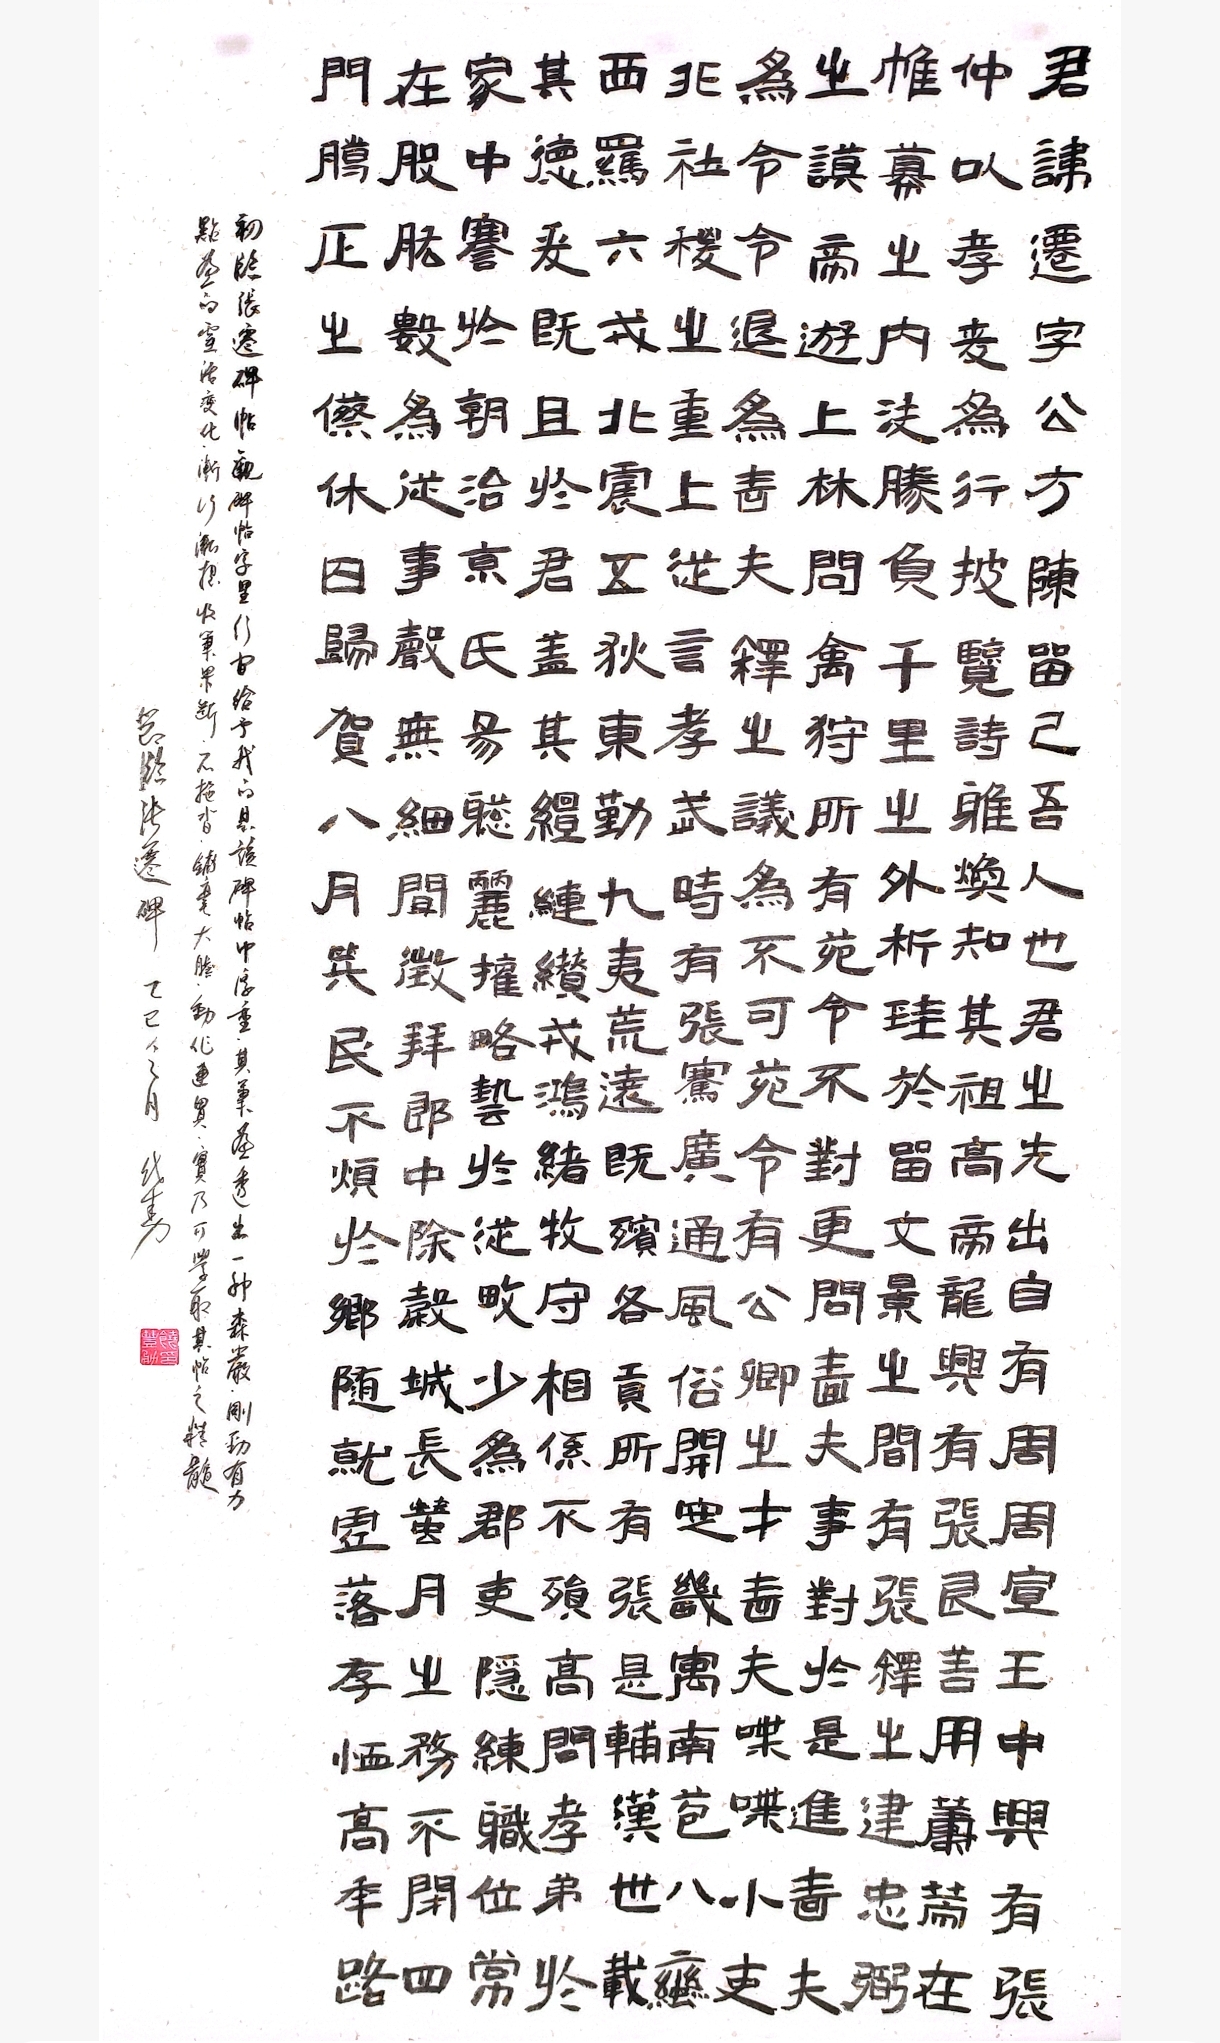 君諱遷字公方陳留己吾人也君之先出自有周周宣王中興有張
仲以孝友為行披覽詩雅煥知其祖高帝龍興有張良善用蕭帷在
帷幕之內決勝負千里之外析珪於留文景之間有張釋之建忠弼
之謨帝遊上林問禽狩所有苑令不對更問嗇夫事對於是進嗇夫
為令令退為嗇夫釋之議為不可苑令有公卿之才嗇夫喋喋小吏
非社稷之重上從言孝武時有張騫廣通風俗開定畿寓南苞八蠻
西羈六戎北震五狄東勤九夷荒遠既殯各貢所有張是輔漢世載
其德爰既且於君蓋其繵縺纘戎鴻緒牧守相係不殞高問孝弟於
家中謇於朝治京氏易聰麗權略藝於從畋少為郡吏隱練職位常
在股肱數為從事聲無細聞徵拜郎中除穀城長蠶月之務不閉四
門臘正之僚休囚歸賀八月筭民不煩於鄉隨就虛落存恤高年路
初臨張遷碑帖觀碑帖字里行間給予我的是該碑帖中厚重其筆畫透出一种森嚴剛勁有力
點畫的靈活變化漸行漸提收筆果斷不拖沓鋪毫大膽動作連貫實乃可學取其帖之精髓
臨張遷碑 乙巳 月